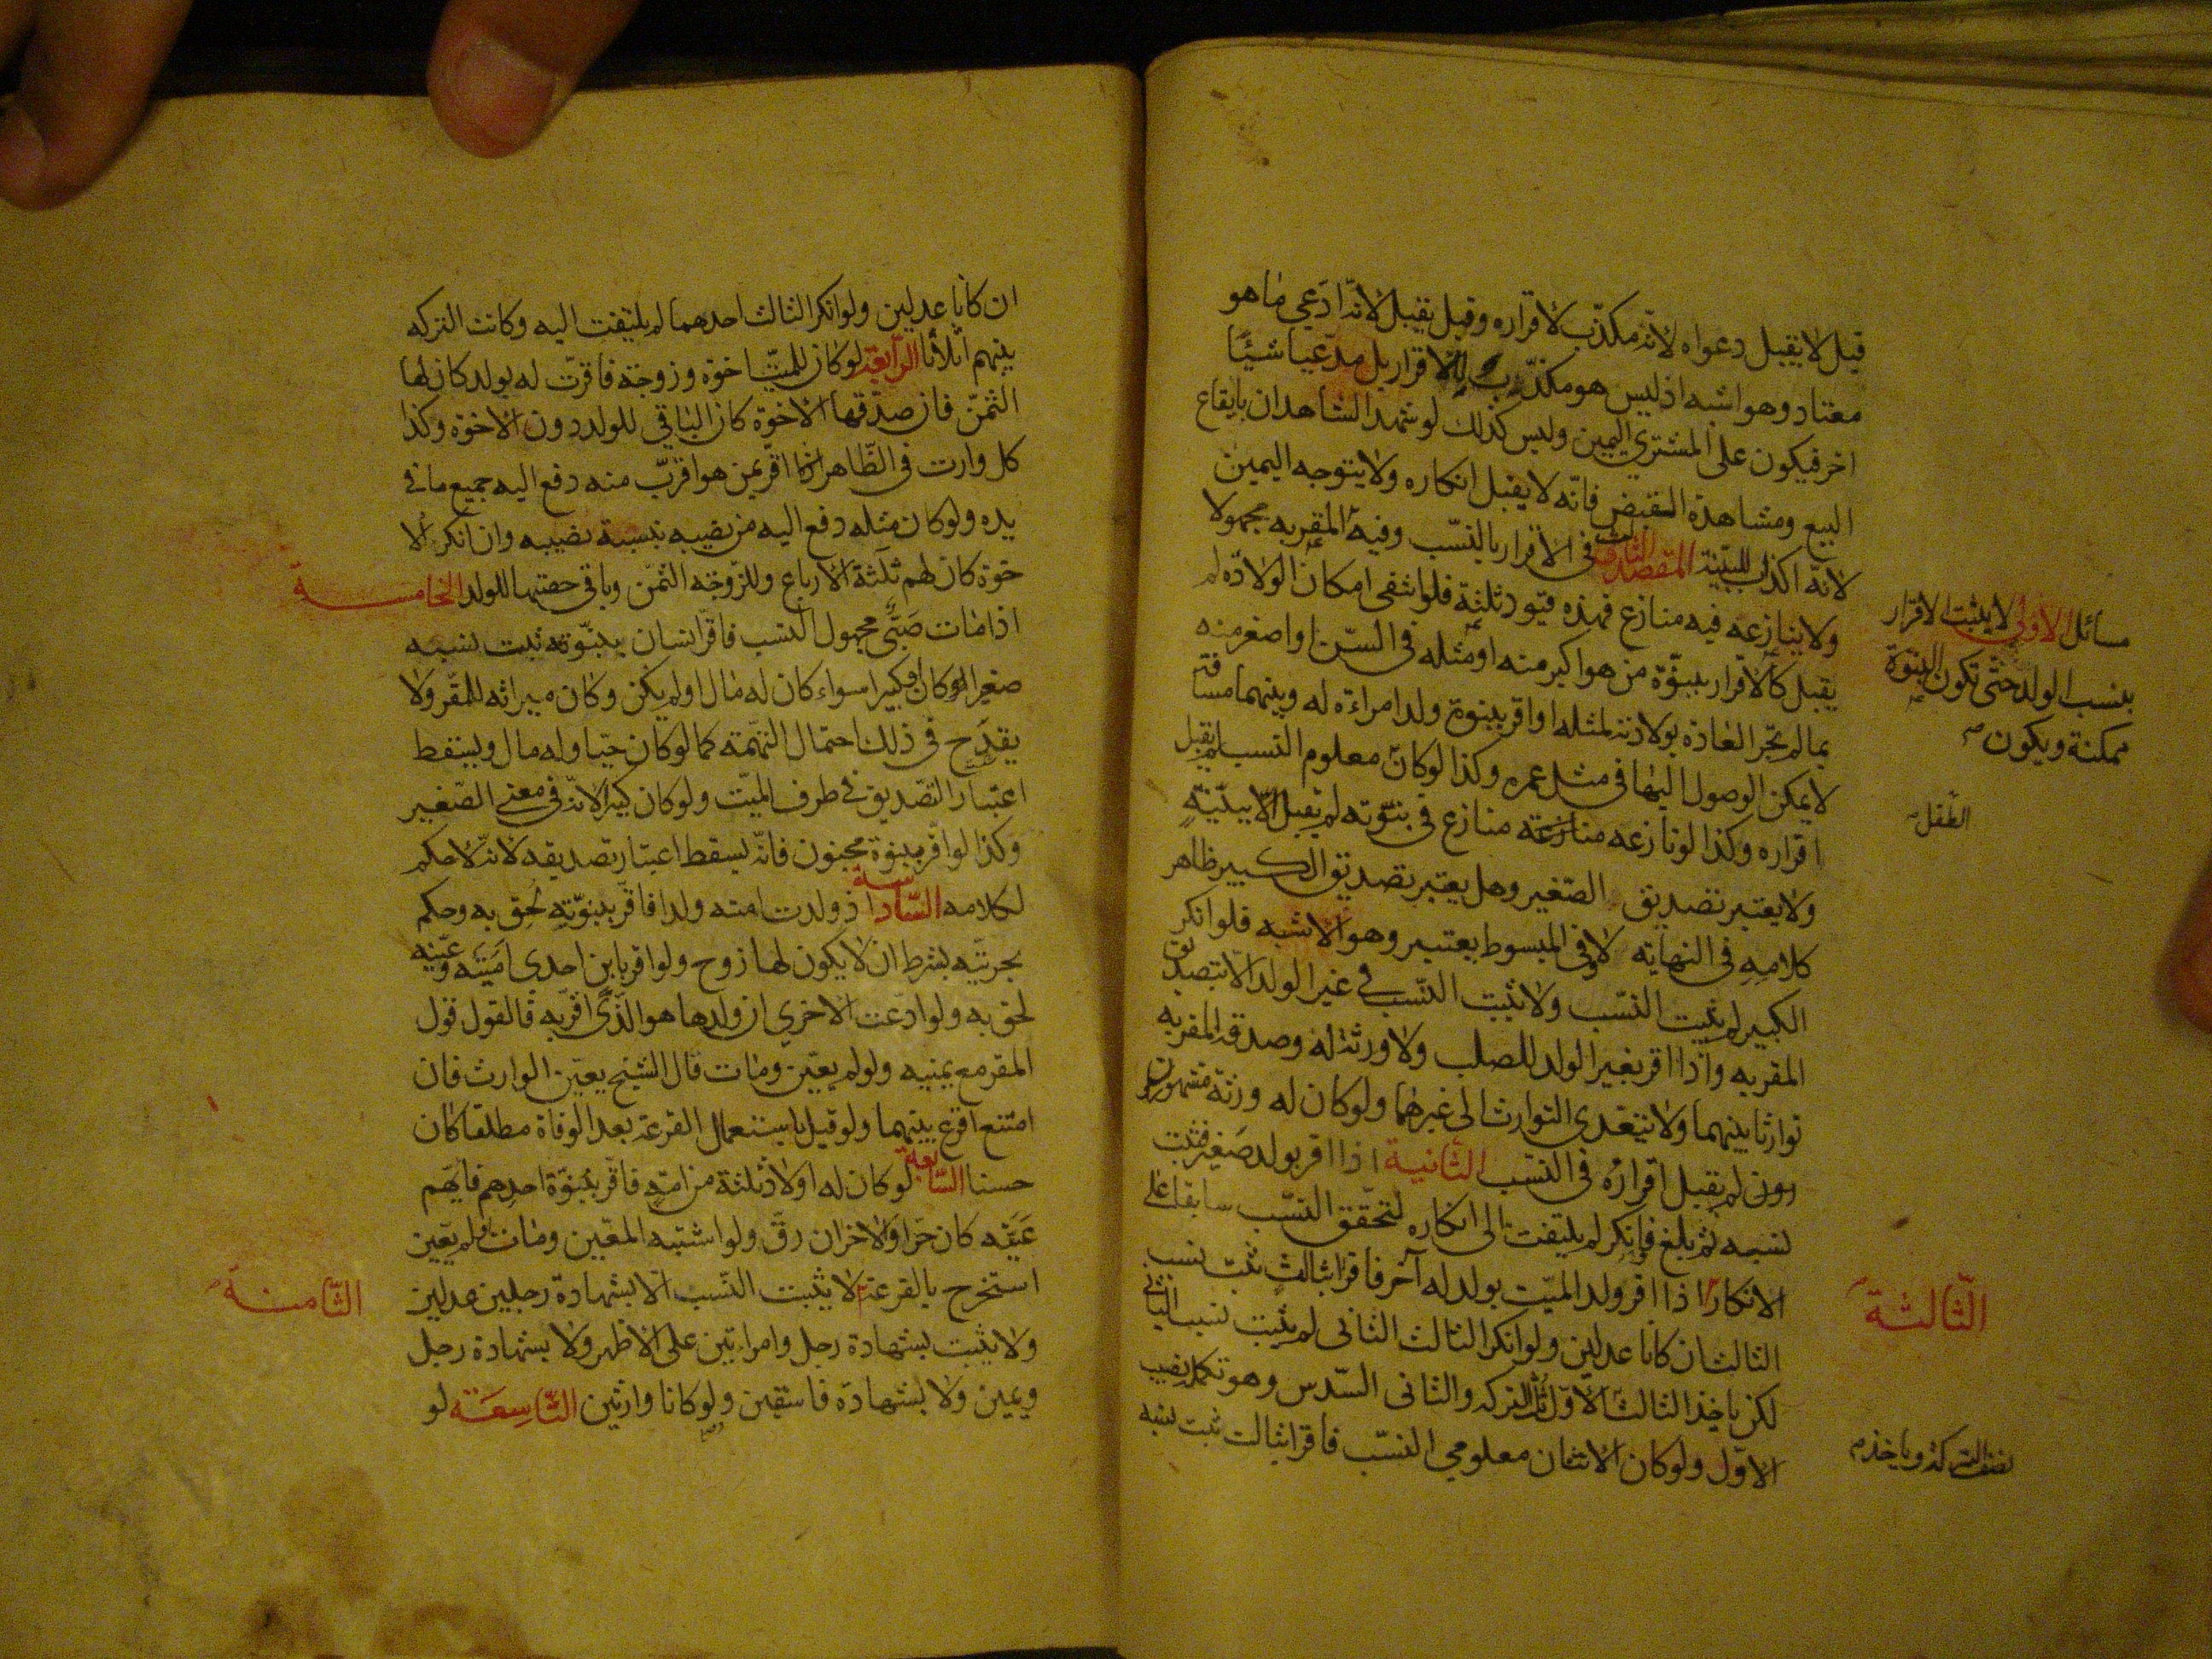 قيل لا يقبل دعواه لانّه مكذّب لاقراره وقيل يقبل لانّه ادّعي ما هو
معتاد وهو اشبه اذ ليس هو مكذّب للاقرار بل مدّعيا شيئا
اخر فيكون على المشتري اليمين وليس كذلك لو شهد الشاهدان بايقاع
البيع ومشاهدة القبض فانّه لا يقبل انكاره ولا يتوجه اليمين
لانّه اكذاب للبيّنة المقصد الثالث فى الاقرار بالنسّب وفيه المقر به مجهولا
مسائل الاولى لا يثبت الاقرار
بنسب الولد حتّى تكون البنوة
ممكنة ويكون
ولا ينازعه فيه منازع فهذه قيود ثلثة فلو انتفى امكان الولادة لم
يقبل كالاقرار ببنوّة من هو اكبر منه او مثله فى السّن او اصغر منه
بما لم تجّر العادة بولادته لمثله او اقر ببنوة ولد امراءة له وبينهما مسافة
لا يمكن الوصول اليها فى مثل عمره وكذا لو كان معلوم النسب لم يقبل
الطفل
اقراره وكذا لو نازعه منازعة منازع فى بنوّته لم يقبل الاّ ببيّنةٍ
ولا يعتبر تصديق الصّغير وهل يعتبر تصديق الكبير ظاهر
كلامه فى النهاية لا وفى المبسوط يعتبر وهو الاشبه فلو انكر
الكبير لم يثبت النسّب ولا يثبت النسّب فى غير الولد الاّ بتصديق
المقر به واذا اقر بغير الولد للصلب ولا ورثة له وصدقه المقر به
توارثا بينهما ولا يتعدى التوارث الى غيرهما ولو كان له ورثة مشهورون
دون لم يقبل اقراره فى النسّب الثانية اذا اقر بولد صغير فثبت
نسبه ثم بلغ فانكر لم يلتفت الى انكاره لتحقّق النسّب سابقا على
الثّالثة
الانكار اذا اقر ولد الميّت بولد له آخر فاقرا بثالث ثبت نسب
الثالث ان كانا عدلين ولو انكر الثالث الثانى لم يثبت نسب الثانى
لكن ياخذ الثالث الاوّل ثلث التركه والثانى السّدس وهو تكملة نصيب
نصف التركة وياخذ
الاوّل ولو كان الاثنان معلومي النسّب فاقرا بثالث ثبت نسبه
ان كانا عدلين ولو انكر الثالث احدهما لم يلتفت اليه وكانت التركه
بينهم اثلاثا الرّابعة لو كان للميّت اخوة وزوجة فاقرّت له بولد كان لها
الثمّن فان صدّقها الاخوة كان الباقي للولد دون الاخوة وكذا
كل وارث فى الظّاهر اذا اقّر بمن هو اقرّب منه دفع اليه جميع ما فى
يده ولو كان مثله دفع اليه من نصيبه بنسبة نصيبه وان انكر الا
خوة كان لهم ثلثة الارباع وللزّوجة الثمّن وباقى حصتها للولد الخامسة
اذا مات صبّى مجهول النسب فاقّر انسان ببنّوته ثبت نسبه
صغيرا لو كان او كبيرا سواء كان له مال او لم يكن وكان ميراثه للمقّر ولا
يقدح فى ذلك احتمال التهّمة كما لو كان حيّا وله مال ويسقط
اعتبار التصّديق فى طرف الميّت ولو كان كبيرا لانّه فى معنى الصّغير
وكذا لو اقّر ببنوة مجنون فانّه يسقط اعتبار تصديقه لانّه لا حكم
لكلامه السّادسة اذ ولدت امته ولدا فاقّر ببنوّته لحق به وحكم
بحريتّه بشرط ان لا يكون لها زوج ولو اقر بابن احدى امتيه وعيّنه
لحق به ولو ادّعت الاخري ان ولدها هو الّذى اقّر به فالقول قول
المقر مع يمينه ولو لم يعيّن ومات قال الشيخ يعيّن الوارث فان
امتنع اقرع بينهما ولو قيل باستعمال القرعة بعد الوفاة مطلقا كان
حسنا السّابعة لو كان له اولاد ثلثة من امة فاقّر ببنوّة احدهم فايهّم
عيّنه كان حرّا والاخران رقّ ولو اشتبه المعّين ومات او لم يعّين
استخرج بالقرعة لا يثبت النسّب الّا بشهادة رجلين عدلين
الثّامنة
ولا يثبت بشهادة رجل وامراتين على الاظهر ولا بشهادة رجل
ويمين ولا بشهادة فاسقين ولو كانا وارثين التّاسعة لو